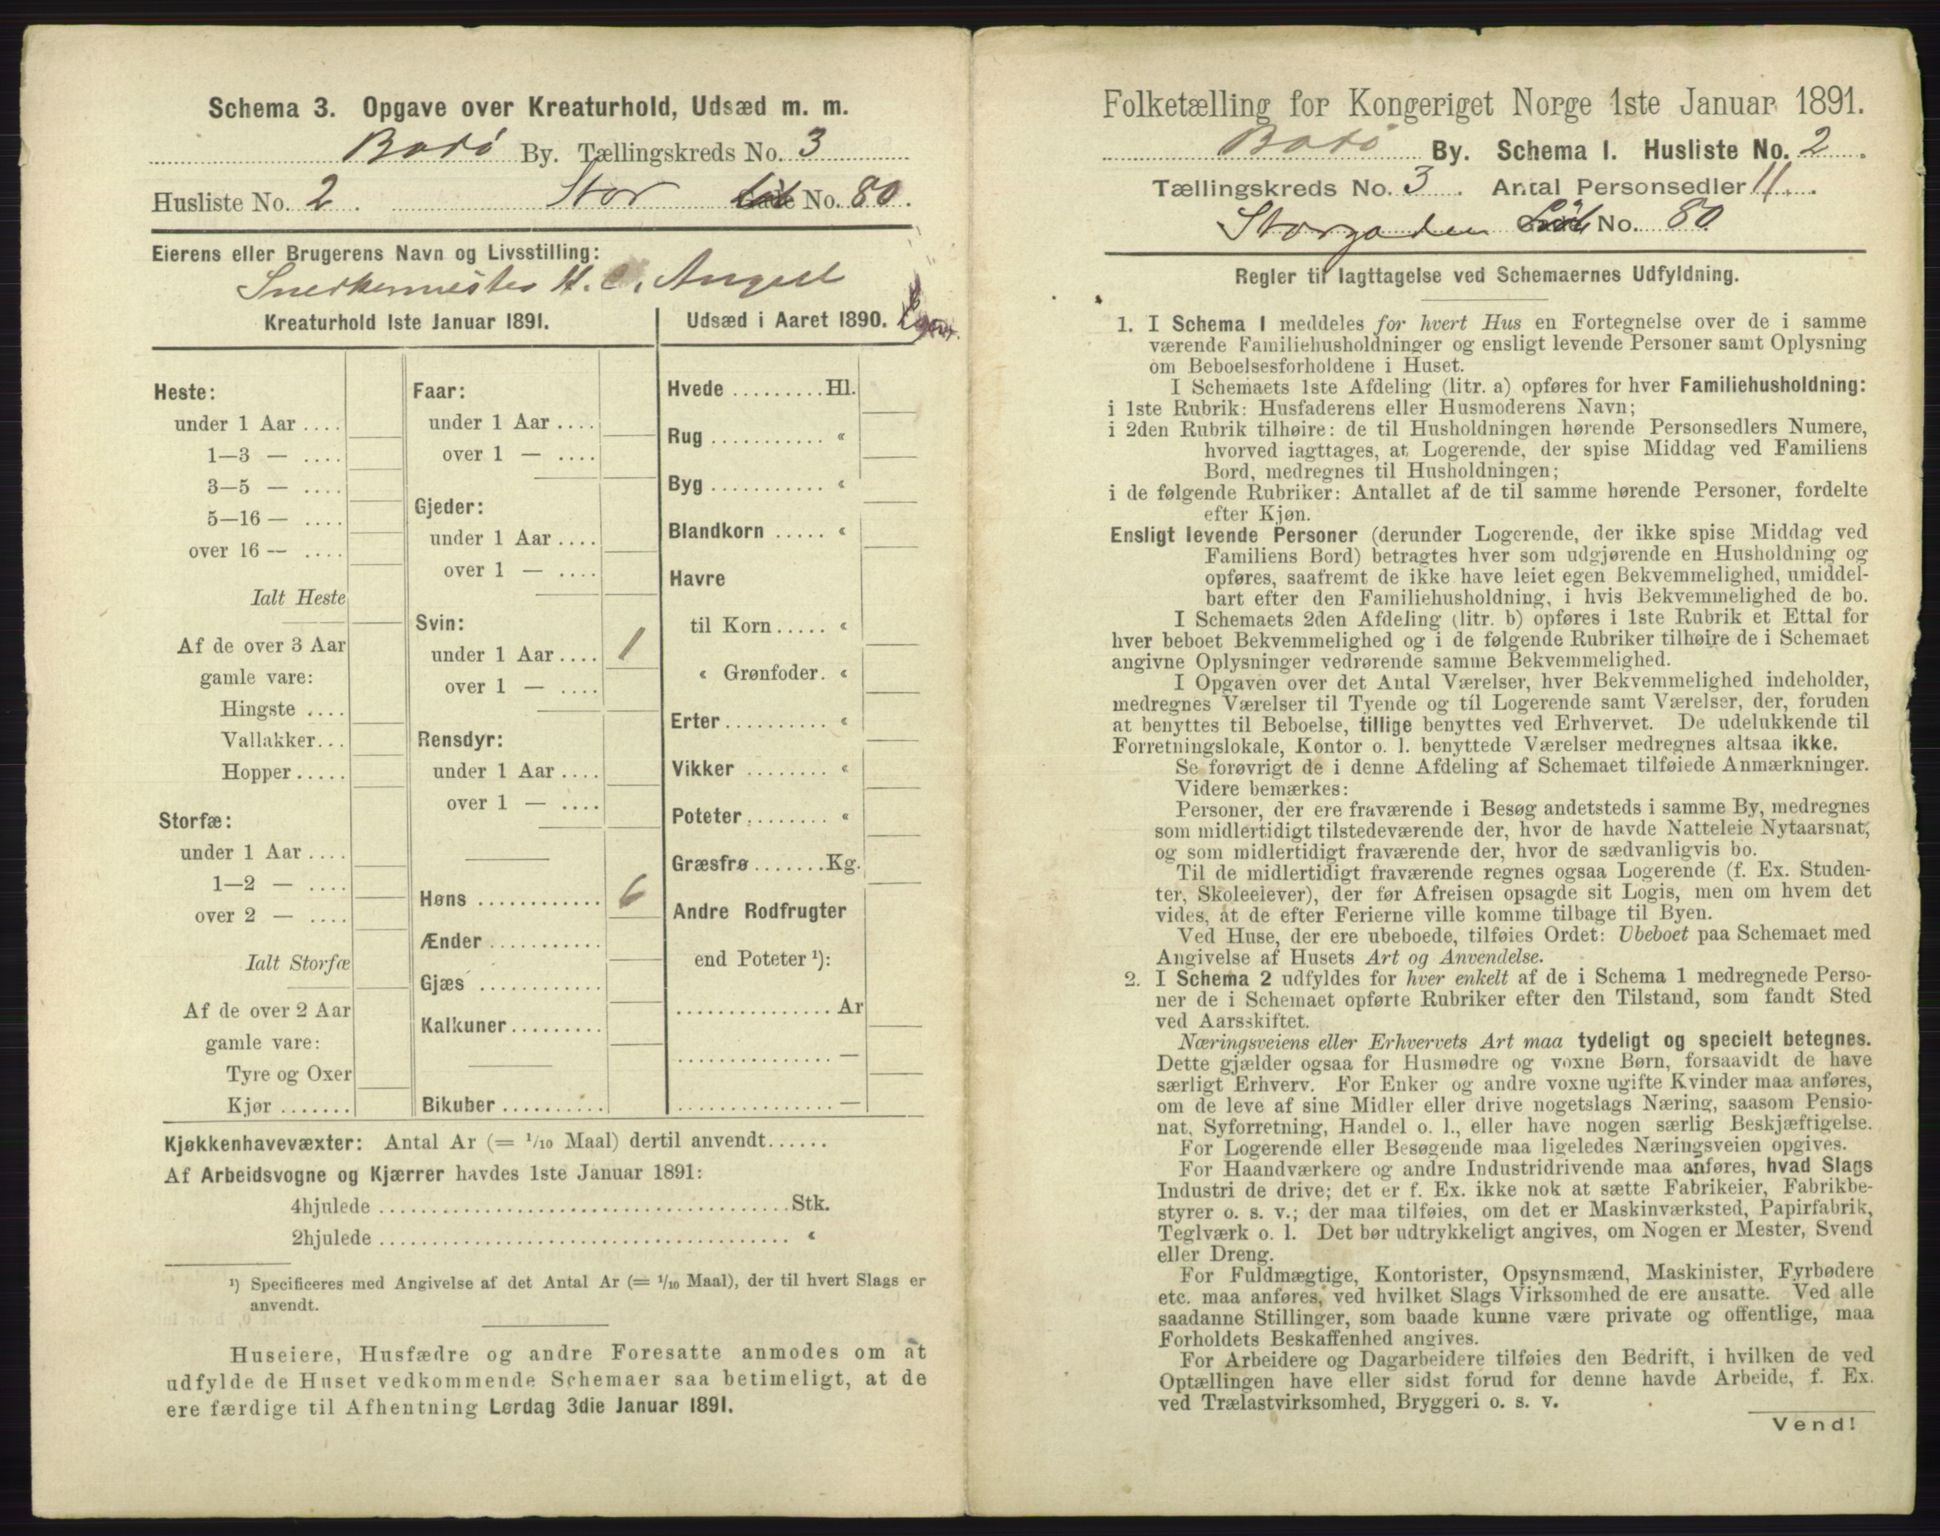 Schema 3. Opgave over Kreaturhold, Udsæd m. m.
Bodø By. Tællingskreds No. 3
Husliste No. 2. Stor No. 80.
Eierens eller Brugerens Navn og Livsstilling:
Snedkermester H. C. Angell
Kreaturhold 1ste Januar 1891.
Heste:
under 1 Aar ....
1—3 — ....
3—5 — ....
5—16 — ....
over 16 — ....
Ialt Heste
Af de over 3 Aar
gamle vare:
Hingste ....
Vallakker...
Hopper.....
Storfæ:
under 1 Aar ....
1—2 — ....
over 2 — ....
Ialt Storfæ
Af de over 2 Aar
gamle vare:
Tyre og Oxer
Kjør .......
Faar:
under 1 Aar ....
over 1 — ....
Gjeder:
under 1 Aar ....
over 1 — ....
Svin:
under 1 Aar .... 1
over 1 — ....
Rensdyr:
under 1 Aar ....
over 1 — ....
Høns ............ 6
Ænder ...........
Gjæs ............
Kalkuner.........
Bikuber ..........
Udsæd i Aaret 1890.
Hvede .........Hl.
Rug ........... «
Byg ........... «
Blandkorn ..... «
Havre
til Korn..... «
« Grønfoder. «
Erter .......... «
Vikker ......... «
Poteter......... «
Græsfrø .......Kg.
Andre Rodfrugter
end Poteter ¹):
...............Ar
...............—
...............—
Kjøkkenhavevæxter: Antal Ar (= 1/10 Maal) dertil anvendt......
Af Arbeidsvogne og Kjærrer havdes 1ste Januar 1891:
4hjulede ....................................Stk.
2hjulede .................................... «
¹) Specificeres med Angivelse af det Antal Ar (= 1/10 Maal), der til hvert Slags er
anvendt.
Huseiere, Husfædre og andre Foresatte anmodes om at
udfylde de Huset vedkommende Schemaer saa betimeligt, at de
ere færdige til Afhentning Lørdag 3die Januar 1891.
Folketælling for Kongeriget Norge 1ste Januar 1891.
Bodø By. Schema I. Husliste No. 2.
Tællingskreds No. 3. Antal Personsedler 11.
Storgaden No. 80
Regler til Iagttagelse ved Schemaernes Udfyldning.
1. I Schema I meddeles for hvert Hus en Fortegnelse over de i samme
værende Familiehusholdninger og ensligt levende Personer samt Oplysning
om Beboelsesforholdene i Huset.
I Schemaets 1ste Afdeling (litr. a) opføres for hver Familiehusholdning:
i 1ste Rubrik: Husfaderens eller Husmoderens Navn;
i 2den Rubrik tilhøire: de til Husholdningen hørende Personsedlers Numere,
hvorved iagttages, at Logerende, der spise Middag ved Familiens
Bord, medregnes til Husholdningen;
i de følgende Rubriker: Antallet af de til samme hørende Personer, fordelte
efter Kjøn.
Ensligt levende Personer (derunder Logerende, der ikke spise Middag ved
Familiens Bord) betragtes hver som udgjørende en Husholdning og
opføres, saafremt de ikke have leiet egen Bekvemmelighed, umiddel-
bart efter den Familiehusholdning, i hvis Bekvemmelighed de bo.
I Schemaets 2den Afdeling (litr. b) opføres i 1ste Rubrik et Ettal for
hver beboet Bekvemmelighed og i de følgende Rubriker tilhøire de i Schemaet
angivne Oplysninger vedrørende samme Bekvemmelighed.
I Opgaven over det Antal Værelser, hver Bekvemmelighed indeholder,
medregnes Værelser til Tyende og til Logerende samt Værelser, der, foruden
at benyttes til Beboelse, tillige benyttes ved Erhvervet. De udelukkende til
Forretningslokale, Kontor o. l. benyttede Værelser medregnes altsaa ikke.
Se forøvrigt de i denne Afdeling af Schemaet tilføiede Anmærkninger.
Videre bemærkes:
Personer, der ere fraværende i Besøg andetsteds i samme By, medregnes
som midlertidigt tilstedeværende der, hvor de havde Natteleie Nytaarsnat,
og som midlertidigt fraværende der, hvor de sædvanligvis bo.
Til de midlertidigt fraværende regnes ogsaa Logerende (f. Ex. Studen-
ter, Skoleelever), der før Afreisen opsagde sit Logis, men om hvem det
vides, at de efter Ferierne ville komme tilbage til Byen.
Ved Huse, der ere ubeboede, tilføies Ordet: Ubeboet paa Schemaet med
Angivelse af Husets Art og Anvendelse.
2. I Schema 2 udfyldes for hver enkelt af de i Schema 1 medregnede Perso-
ner de i Schemaet opførte Rubriker efter den Tilstand, som fandt Sted
ved Aarsskiftet.
Næringsveiens eller Erhvervets Art maa tydeligt og specielt betegnes.
Dette gjælder ogsaa for Husmødre og voxne Børn, forsaavidt de have
særligt Erhverv. For Enker og andre voxne ugifte Kvinder maa anføres,
om de leve af sine Midler eller drive nogetslags Næring, saasom Pensio-
nat, Syforretning, Handel o. l., eller have nogen særlig Beskjæftigelse.
For Logerende eller Besøgende maa ligeledes Næringsveien opgives.
For Haandværkere og andre Industridrivende maa anføres, hvad Slags
Industri de drive; det er f. Ex. ikke nok at sætte Fabrikeier, Fabrikbe-
styrer o. s. v.; der maa tilføies, om det er Maskinværksted, Papirfabrik,
Teglværk o. l. Det bør udtrykkeligt angives, om Nogen er Mester, Svend
eller Dreng.
For Fuldmægtige, Kontorister, Opsynsmænd, Maskinister, Fyrbødere
etc. maa anføres, ved hvilket Slags Virksomhed de ere ansatte. Ved alle
saadanne Stillinger, som baade kunne være private og offentlige, maa
Forholdets Beskaffenhed angives.
For Arbeidere og Dagarbeidere tilføies den Bedrift, i hvilken de ved
Optællingen have eller sidst forud for denne havde Arbeide, f. Ex.
ved Trælastvirksomhed, Bryggeri o. s. v.
Vend!